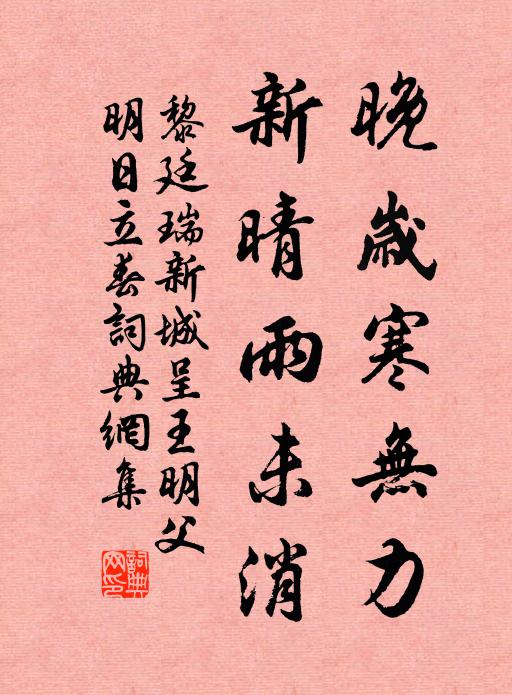 晚歲寒無力
新晴雨未消
黎廷瑞新城呈王明父
明日立春詞典網集
詞典网印